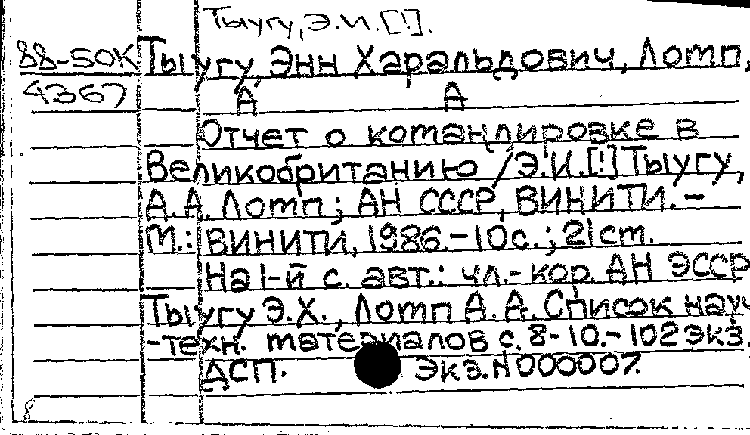 Тыугу, Э.И.[!].
88-50К Тыугу, Энн Харальдович, Лотп,
4367 А А
Отчет о командировке в
Великобританию / Э.И.[!] Тыугу,
А.А. Лотп; АН СССР, ВИНИТИ. –
М.: ВИНИТИ, 1986. – 10 с.; 21 ст.
На 1-й с. авт.: чл.-кор. АН ЭССР
Тыугу Э.Х., Лотп А.А. Список науч
-техн. материалов с. 8-10. – 102 экз.
ДСП. Экз. N 000007.
8